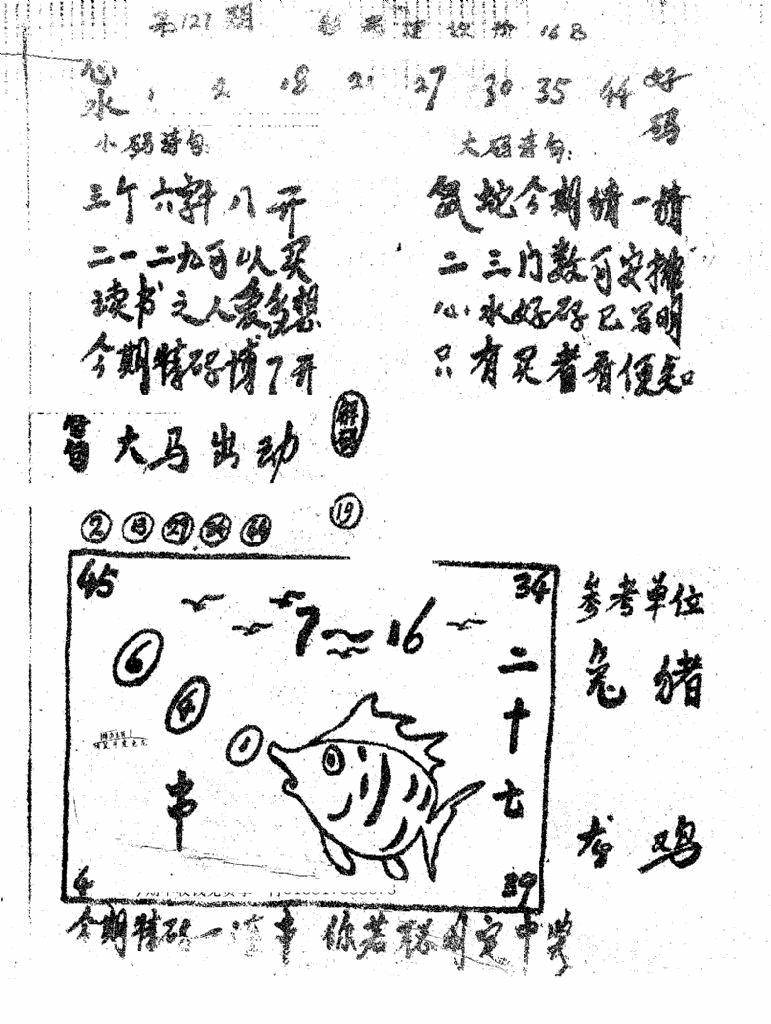 第127期
心水 1 2 18 21 27 30 35 44 好码
小码诗句:
大码诗句:
三个六字八开
鼠蛇今期猜一猜
二一二九可以买
二三门数可安排
读书之人爱多想
心水好码已写明
今期特码博7开
只有买者看便知
大马出动
解码
2 13 27 44
19
45 34
7 16
6
4
1
二十七
串
4 39
参考单位
兔 猪
龙 鸡
今期特码一串 你若联网定中奖